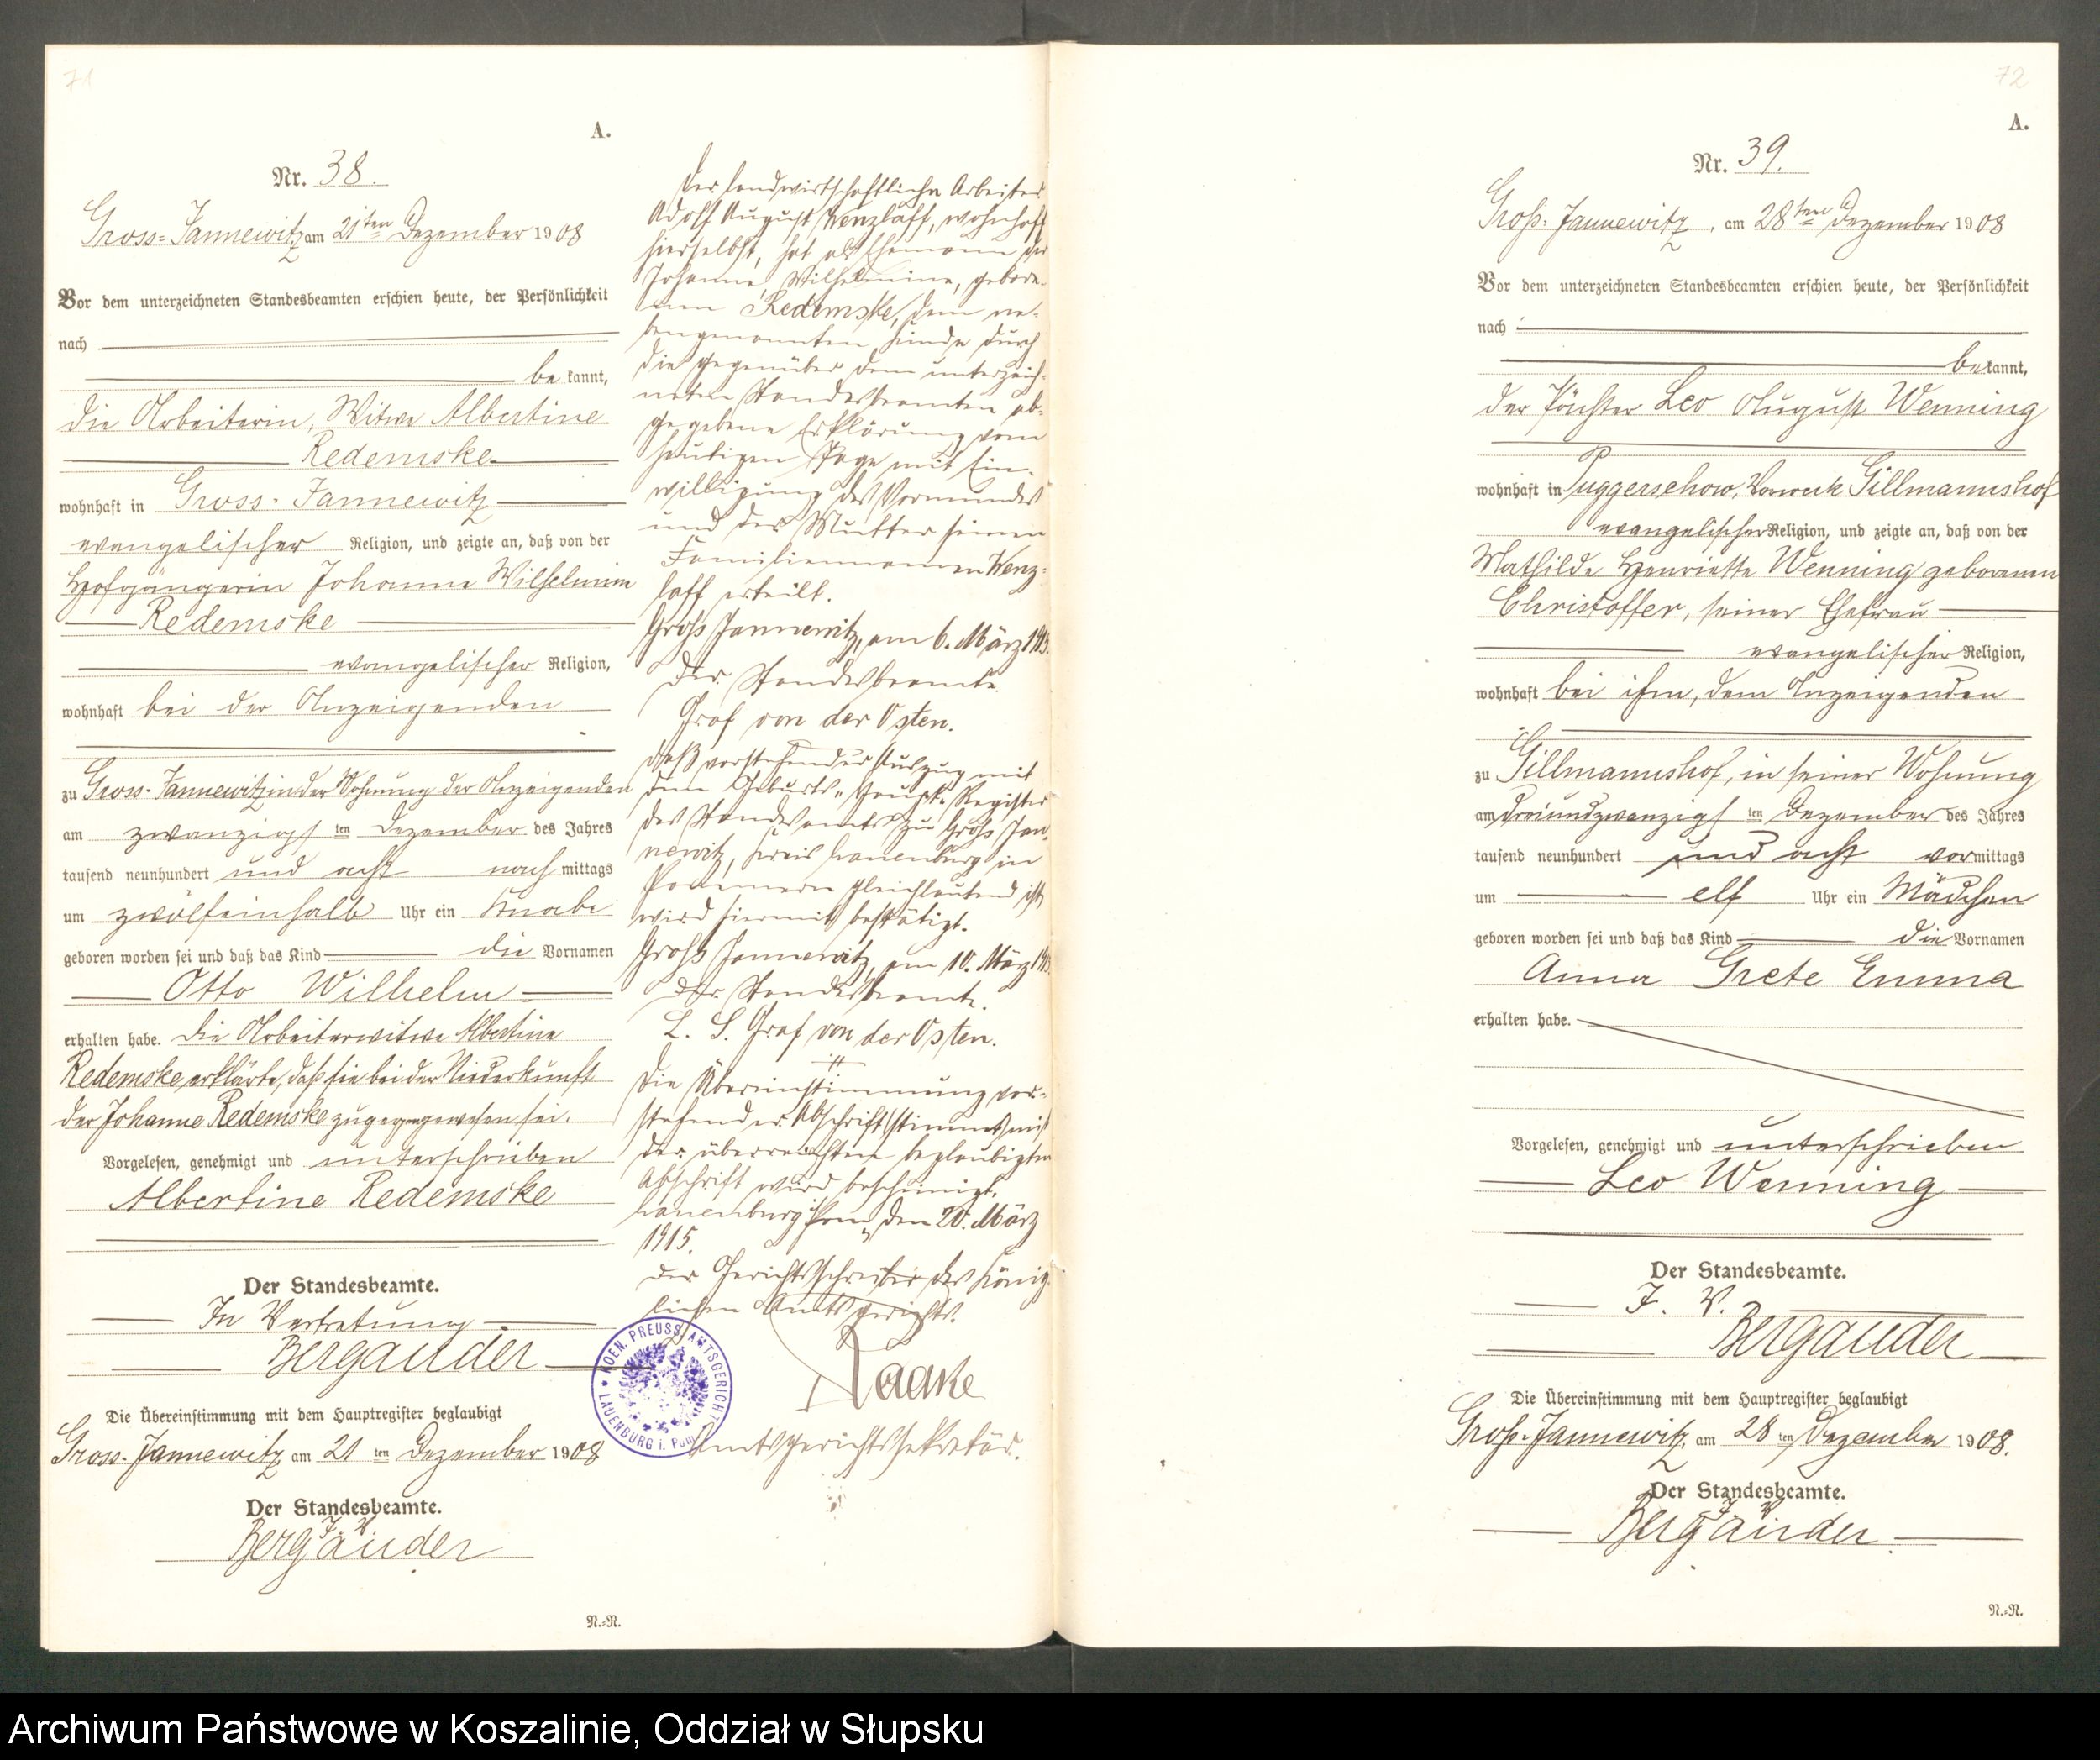 71
A.
Nr. 38.
Gross-Jannewitz am 21ten Dezember 1908
Vor dem unterzeichneten Standesbeamten erschien heute, der Persönlichkeit
nach
bekannt,
die Arbeiterin, Witwe Albertine
Redemske
wohnhaft in Gross-Jannewitz
evangelischer Religion, und zeigte an, daß von der
Hofgängerin Johanne Wilhelmine
Redemske
evangelischer Religion,
wohnhaft bei der Anzeigenden
zu Gross-Jannewitz in der Wohnung der Anzeigenden
am zwanzigsten Dezember des Jahres
tausend neunhundert und acht nachmittags
um zwölfeinhalb Uhr ein Knabe
geboren worden sei und daß das Kind die Vornamen
Otto Wilhelm
erhalten habe. Die Arbeiterwitwe Albertine
Redemske erklärte, daß sie bei der Niederkunft
der Johanne Redemske zugegen gewesen sei.
Vorgelesen, genehmigt und unterschrieben
Albertine Redemske
Der Standesbeamte.
In Vertretung
Bergander
Die Übereinstimmung mit dem Hauptregister beglaubigt
Gross-Jannewitz am 21ten Dezember 1908
Der Standesbeamte.
J. V.
Bergander
N.-N.
Der landwirtschaftliche Arbeiter
Adolf August Wenzlaff, wohnhaft
hierselbst, hat als Ehemann der
Johanne Wilhelmine, gebore-
nen Redemske, dem ne-
bengenannten Kinde durch
die gegenüber dem unterzeich-
neten Standesbeamten ab-
gegebene Erklärung vom
heutigen Tage mit Ein-
willigung des Vormundes
und der Mutter seinen
Familiennamen Wenz-
laff erteilt.
Groß Jannewitz, am 6. März 1915.
Der Standesbeamte.
Graf von der Osten.
Daß vorstehender Auszug mit
dem Geburts-Haupt-Register
des Standesamts zu Groß Jan-
newitz, Kreis Lauenburg in
Pommern gleichlautend ist,
wird hiermit bestätigt.
Groß Jannewitz, am 10. März 1915.
Der Standesbeamte.
L. S. Graf von der Osten.
Die Übereinstimmung vor-
stehender Abschrift stimmt mit
der überreichten beglaubigten
Abschrift wird bescheinigt.
Lauenburg Pom, den 20. März
1915.
Der Gerichtsschreiber des König-
lichen Amtsgerichts.
Amtsgerichtssekretär.
KOEN. PREUSS. AMTSGERICHT
LAUENBURG i. Pom.
72
A.
Nr. 39.
Groß-Jannewitz, am 28ten Dezember 1908
Vor dem unterzeichneten Standesbeamten erschien heute, der Persönlichkeit
nach
bekannt,
der Pächter Leo August Wenning
wohnhaft in Puggerschow, Vorwerk Gillmannshof
evangelischer Religion, und zeigte an, daß von der
Mathilde Henriette Wenning geborenen
Christoffer, seiner Ehefrau
evangelischer Religion,
wohnhaft bei ihm, dem Anzeigenden
zu Gillmannshof, in seiner Wohnung
am dreiundzwanzigsten Dezember des Jahres
tausend neunhundert und acht vormittags
um elf Uhr ein Mädchen
geboren worden sei und daß das Kind die Vornamen
Anna Grete Emma
erhalten habe.
Vorgelesen, genehmigt und unterschrieben
Leo Wenning
Der Standesbeamte.
J. V.
Bergander
Die Übereinstimmung mit dem Hauptregister beglaubigt
Groß-Jannewitz, am 28ten Dezember 1908.
Der Standesbeamte.
J. V.
Bergander
N.-N.
Archiwum Państwowe w Koszalinie, Oddział w Słupsku